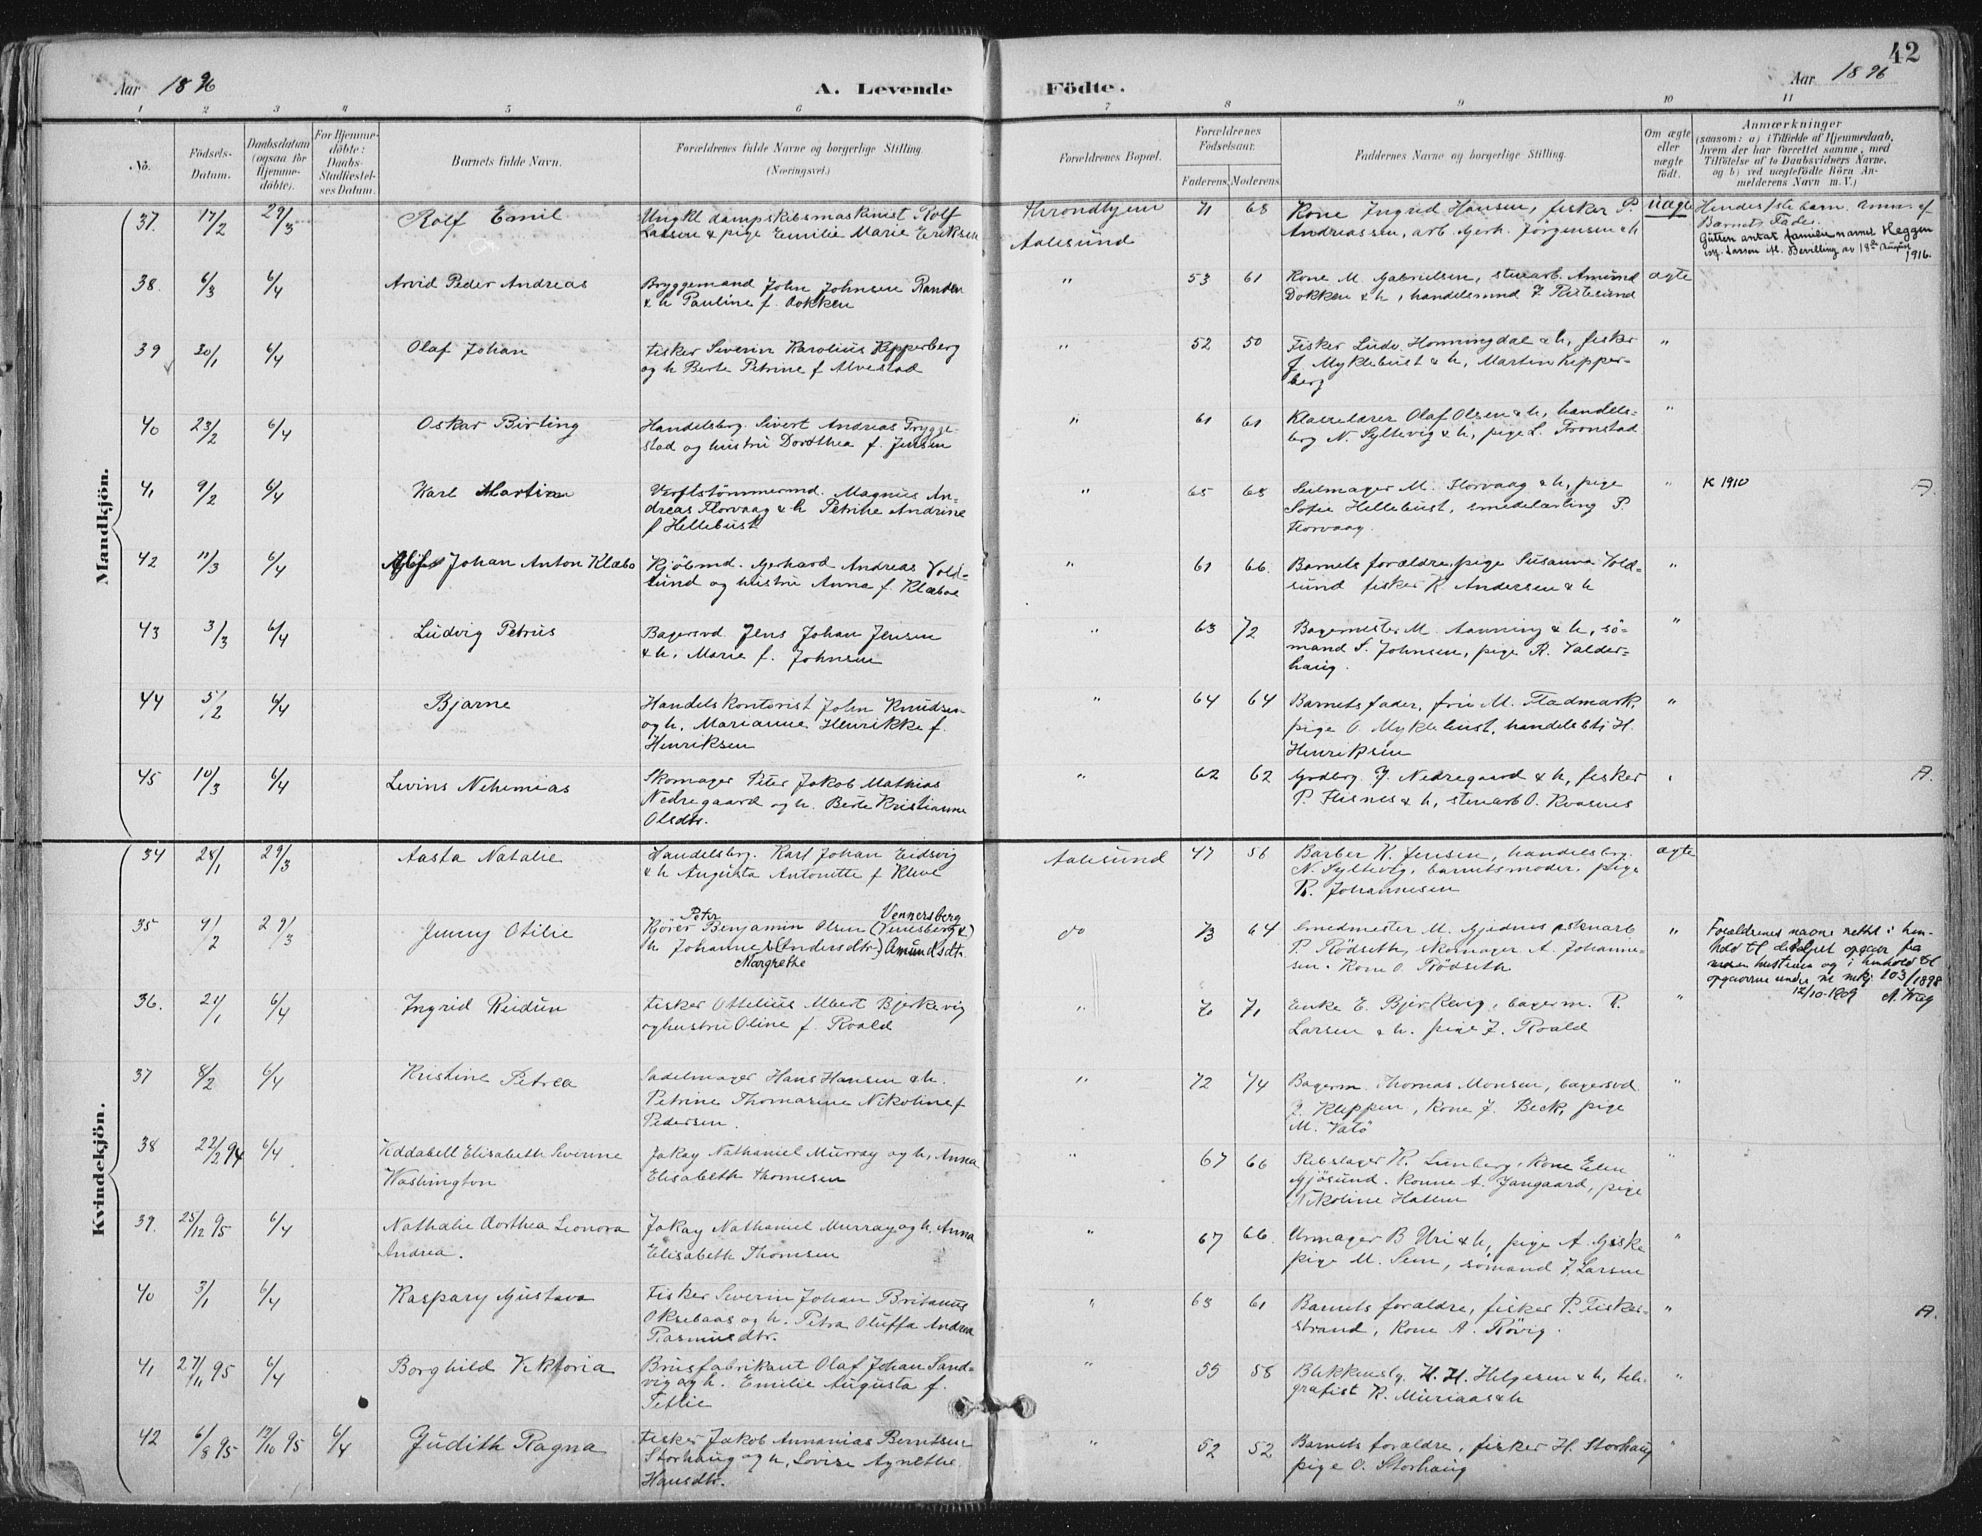 42
Aar 1896
A. Levende Födte.
Aar 1896
1 2 3 4 5 6 7 8 9 10 11
No.
Födsels-Datum.
Daabsdatum (ogsaa for Hjemme-döbte).
For Hjemme-döbte: Daabs-Stadfæstel-ses Datum.
Barnets fulde Navn.
Forældrenes fulde Navne og borgerlige Stilling. (Næringsvei.)
Forældrenes Bopæl.
Forældrenes Födselsaar.
Faderens. Moderens.
Faddernes Navne og borgerlige Stilling.
Om ægte eller uægte födt.
Anmærkninger
(saasom: a) i Tilfælde af Hjemmedaab,
hvem der har forrettet samme, med
Tilföielse af to Daabsvidners Navne,
og b) ved uægtefödte Börn An-
melderens Navn m. V.)
Mandkjön.
37. 17/2 29/3 Rolf Emil
Ungkl dampskibsmaskinist Rolf
Larsen & pige Emilie Marie Eriksen
Throndhjem
Aalesund
71 68
Kone Ingrid Hansen, fisker P.
Andreassen, arb. Gerh. Jörgensen & h
uægte
Hendes 1ste barn. Anm. af
Barnets Fader.
Gutten antat familienavnet Heggen
istf. Larsen ifl. Bevilling av 18de August
1916.
38. 6/3 6/4 Arvid Peder Andreas
Bryggemand John Johnsen Randen
& h Pauline f. Dokken
" 53 61
Kone M. Gabrielsen, stuearb. Amund
Dokken & h, handelsmnd J. Ristesund
ægte
39 30/1 6/4 Olaf Johan
Fisker Severin Karolius Kipperberg
og h Berte Petrine f Alvestad
" 52 50
Fisker Ludv. Honningdal & h, fisker
J. Myklebust & h, Martin Kipper-
berg
"
40 23/2 6/4 Oskar Birting
Handelsbg. Sivert Andreas Trygge-
stad og hustru Dorothea f. Jensen
" 61 61
Klasselærer Olaf Olsen & h, handels-
berg N. Syltevig & h, pige L. Fronstad
"
41 9/2 6/4 Karl Martin
Verftstömmermd. Magnus An-
dreas Florvaag & h Petrine Andrine
f Hellebust
" 65 68
Seilmager M. Florvaag & h, pige
Sofie Hellebust, smedelærling P.
Florvaag.
" K 1910 A.
42 11/3 6/4 Johan Anton Klæbo
Kjöbmd. Gerhard Andreas Vold-
sund og hustru Anna f. Klæboe
" 61 66.
Barnets forældre, pige Susanna Vold-
sund fisker K. Andersen & h
"
43 3/3 6/4 Ludvig Petrus
Bagersvd. Jens Johan Jensen
& h. Marie f. Johnsen
" 63 72
Bagermester M. Aanning & h, sö-
mand S. Johnsen, pige R. Valder-
haug.
"
44 5/2 6/4 Bjarne
Handelskontorist John Knudsen
og h. Marianne Henrikke f.
Henriksen
" 64 64
Barnets fader, fru M. Fladmark,
pige O. Myklebust, handelsbtj H.
Henriksen
"
45 10/3 6/4 Levins Nehemias
Skomager Peter Jakob Mathias
Nedregaard og h. Berte Kristianne
Olsdtr.
" 62 62
Grdbrg. J. Nedregaard & h, fisker
P. Flisnes & h, stuearb O. Kvasnes
" A.
Kvindekjön.
34 28/1 29/3 Aasta Natalie
Handelsbrg. Karl Johan Eidsvig
& h Augusta Antonette f Kleve
Aalesund 47 56
Barber K. Jensen, handelsbrg.
N. Syltevig, barnets moder, pige
R. Johannesen
ægte
35 4/2 29/3 Jenny Otilie
Petr Vennersberg
Kjörer Benjamin Olsen (Venesberg &)
h Johanne (Andersdtr.) Amundsdtr.
Margrethe
do 73 64
Smedmester M. Gjidnes
P. Rödseth, skomager A. Johanne-
sen. Kone O. Rödseth
"
Forældrenes navne rettet i hen-
hold til detaljert opgave fra
hustruen og i henhold til
opgaverne under m mkj. 103/1898
12/10-1909
36. 21/1 6/4 Ingrid Reidun
Fisker Ottelius Albert Bjerkevig
og hustru Oline f. Roald
" 71
Enke E. Bjerkevig, bagerm. R.
Larsen & h. pige J. Roald
"
37 8/2 6/4 Kristine Petrea
Sadelmager Hans Hansen & h.
Petrine Thomasine Nikoline f
Pedersen.
" 72 74
Bagerm. Thomas Monsen, bagersvd.
J. Kleppen, Kone J. Beck, pige
M. Vatö
"
38 22/2 94 6/4 Eddabell Elisabeth Severine
Washington
Jakay Nathaniel Murray og h. Anna
Elisabeth Thomesen
" 67 66
Rebslager K. Lunberg, Kone Elen
Mjösund. Konne A. Jangaard, pige
Nikoline Hatlen
"
39. 25/12 95 6/4 Nathalie Dorthea Leonora
Andrea.
Jakay Nathaniel Murray og h. Anna
Elisabeth Thomsen
" 67 66.
Urmager B Uri & h, pige A. Giske
pige M. Sem, sömand J. Larsen
"
40 3/1 6/4 Kaspary Gustava
Fisker Severin Johan Britanus
Oksebaas og h. Petra Oluffa Andrea
Rasmusdtr.
" 63 61
Barnets forældre, fisker P. Fisker-
strand, Kone A. Rövig.
" A.
41 27/11 95 6/4 Borghild Viktoria
Brusfabrikant Olaf Johan Sand-
vig og h. Emilie Augusta f.
Tetlie
" 55 58
Blikkenslg. H. H. Helgesen & h, tele-
grafist K. Muriaas & h
"
42 6/8 95 12/10 95 6/4 Judith Ragna
Fisker Jakob Annanias Berntsen
Storhaug og h. Lovise Agnethe
Hansdtr.
" 52 52
Barnets forældre, fisker H. Storhaug
pige O. Storhaug
"